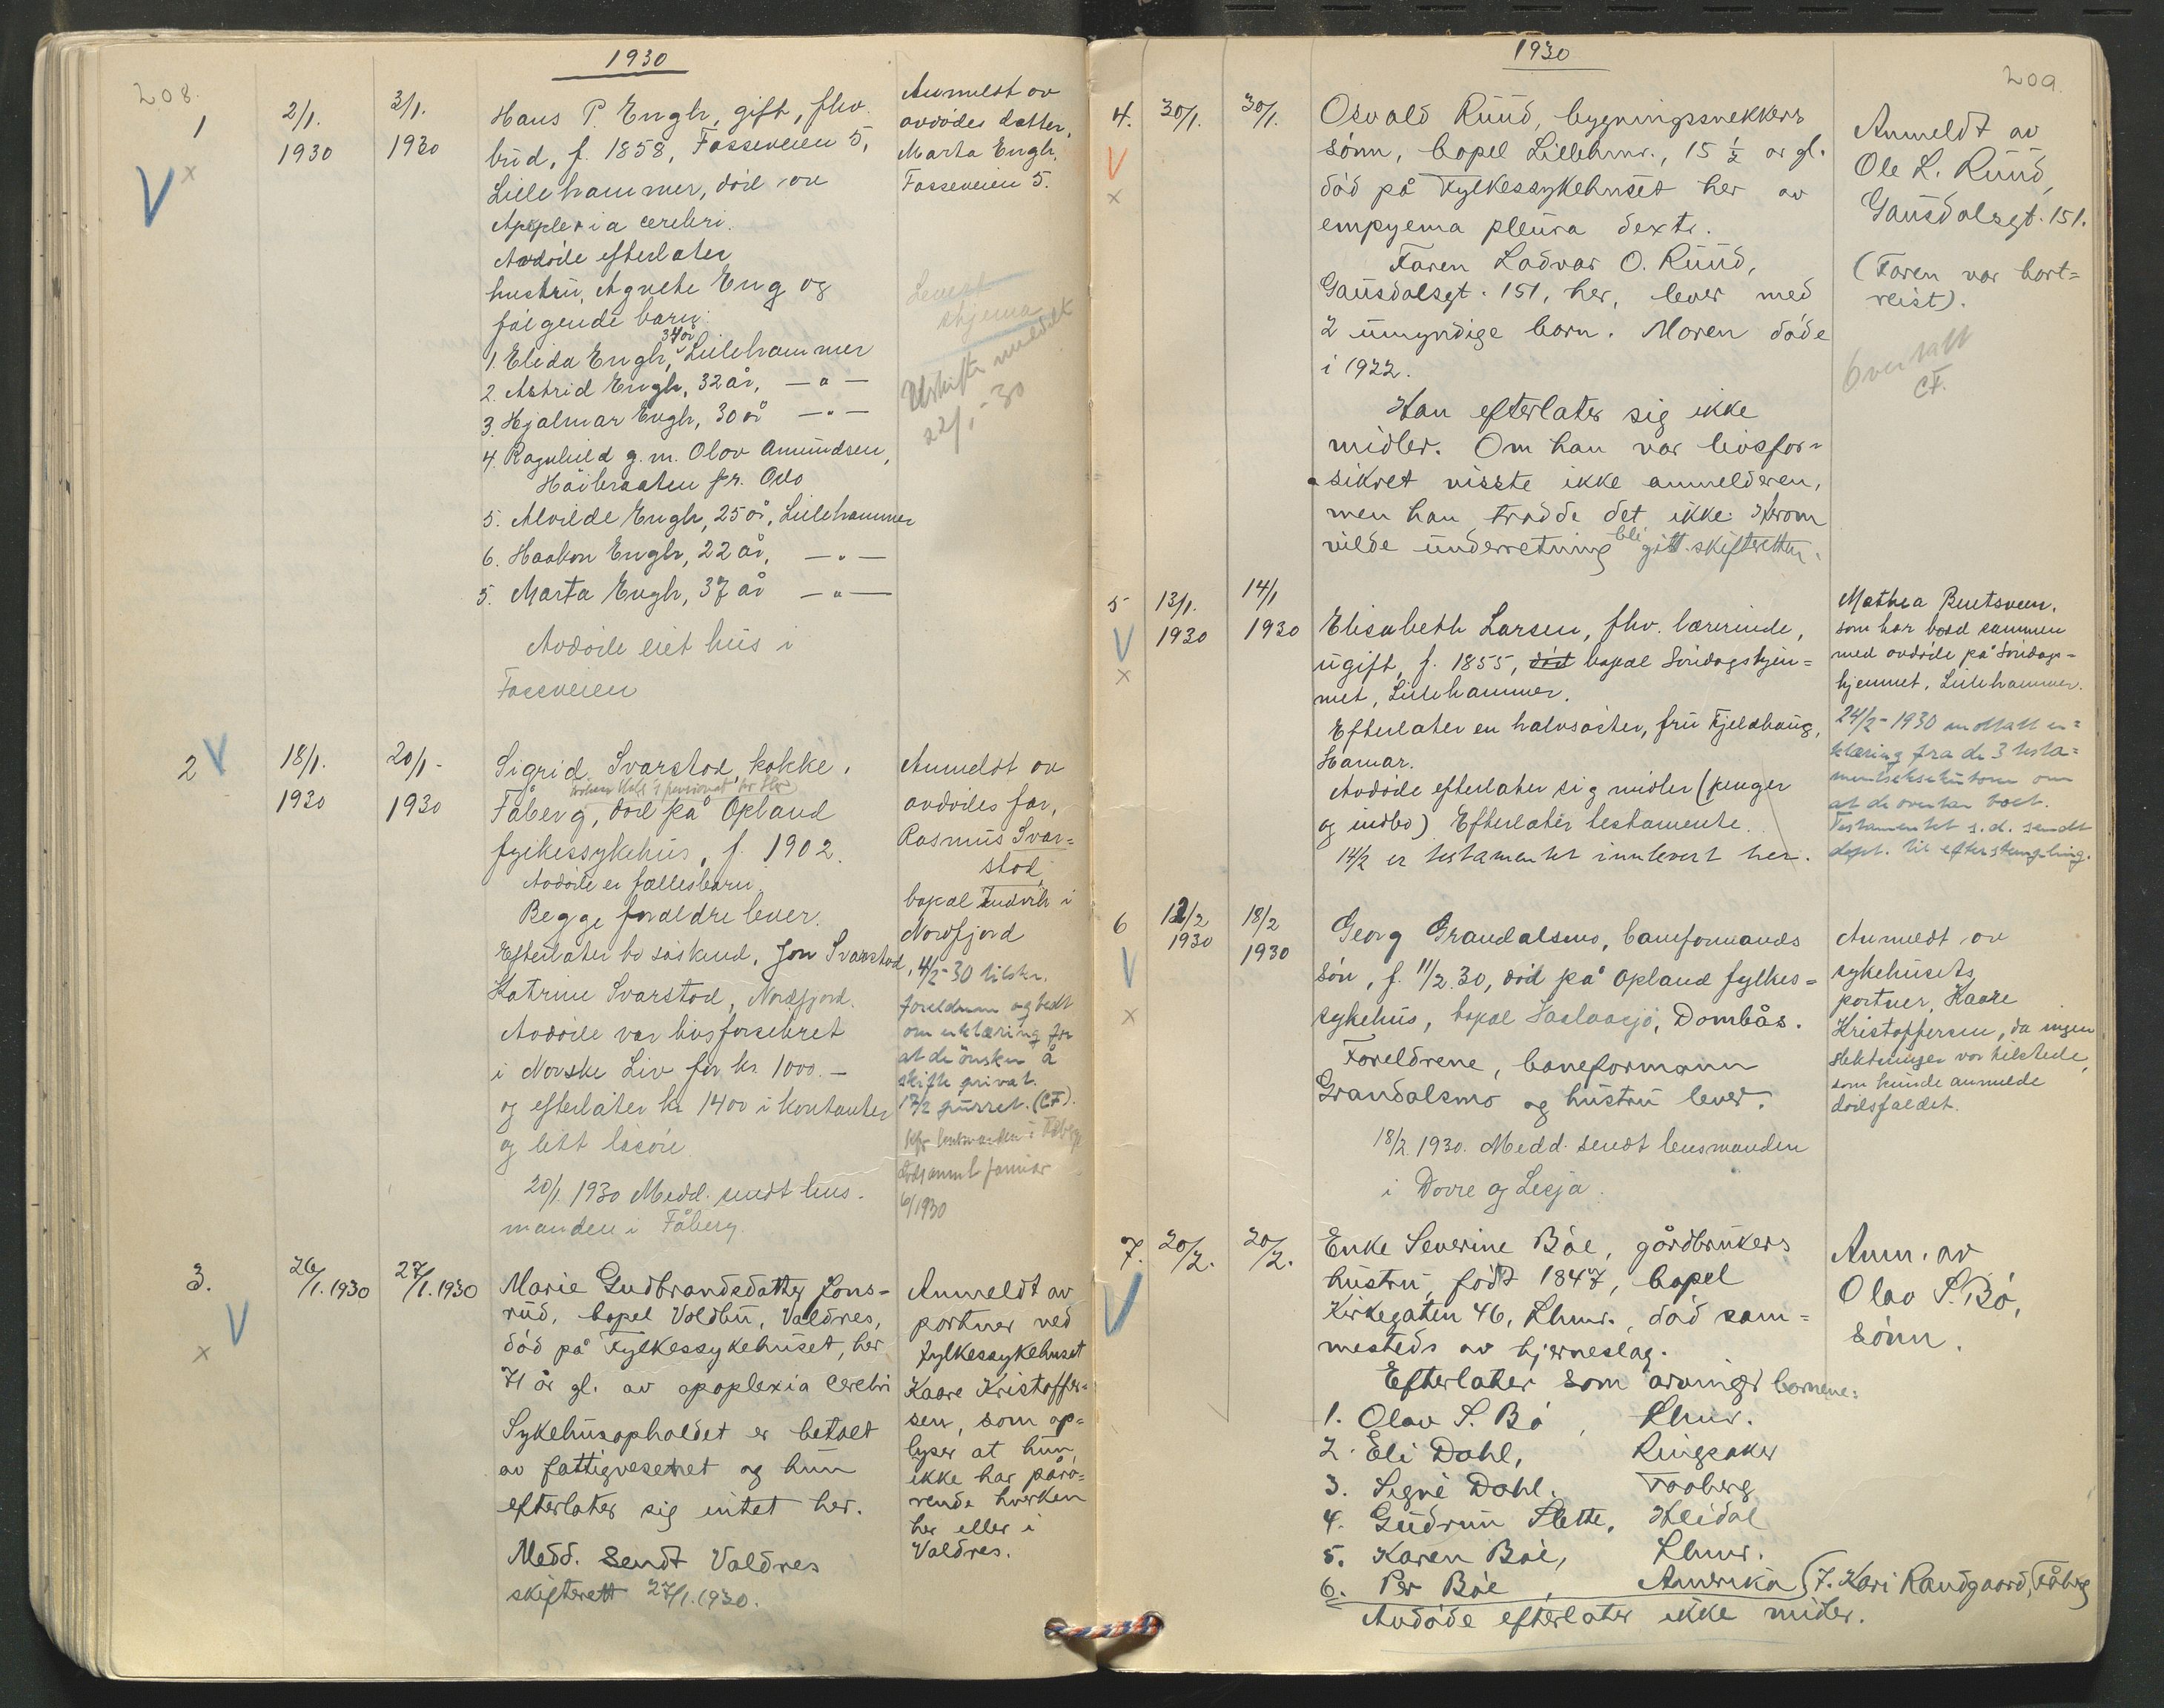 1930
208.
1
2/1.
1930
3/1.
1930
Hans P. Engh, gift, fhv.
bud, f. 1858, Fosseveien 5,
Lillehammer, död av
Apoplexia cerebri.
Avdöde efterlater
hustru, Agnethe Eng og
følgende barn:
1. Elida Engh, 34 år, Lillehammer
2. Astrid Engh, 32 år, — " —
3. Hjalmar Engh, 30 år — " —
4. Ragnhild g. m. Olov Amundsen,
Höibraaten pr. Oslo
5. Alvilde Engh, 25 år, Lillehammer
6. Haakon Engh, 22 år, — " —
5. Marta Engh, 37 år — " —
Avdöde eiet hus i
Fosseveien
Anmeldt av
avdödes datter,
Marta Engh,
Fosseveien 5.
skjema
22/1 - 30
2
18/1.
1930
20/1 -
1930
Sigrid Svarstad, kokke,
Fåberg, död på Opland
fylkessykehus, f. 1902.
Avdöde er fællesbarn.
Begge foreldre lever.
Efterlater to söskend, Jon Svarstad,
Katrine Svarstad, Nordfjord.
Avdöde var livsforsikret
i Norske Liv for kr. 1000.-
og efterlater kr. 1400 i kontanter
og litt lösöre.
20/1. 1930 Medd. sendt lens-
manden i Fåberg.
Anmeldt av
avdödes far,
Rasmus Svar-
stad,
bopæl i
Nordfjord
4/2-30 tilskr.
foreldrene og bedt
om erklæring for
at de önsker å
skifte privat.
17/2 purret. (CF).
januar
1930
3.
26/1. 1930
27/1. 1930
Marie Gudbrandsdatter Fons-
rud, bopel Voldbu, Valdres,
död på Fylkessykehuset, her
71 år gl. av apoplexia cerebri
Sykehusopholdet er betalt
av fattigvesenet og hun
efterlater sig intet her.
Medd. Sendt Valdres
skifterett 27/1. 1930.
Anmeldt av
portner ved
Fylkessykehuset
Kaare Kristoffer-
sen, som op-
lyser at hun
ikke har pårö-
rende hverken
her eller i
Valdres.
1930
209.
4.
30/1.
30/1.
Osvald Ruud, bygningssnekkers
sönn, bopel Lillehmr., 15 ½ år gl.
död på Fylkessykehuset her av
empyema pleura dextr.
Faren Ladvar O. Ruud,
Gausdalsgt. 151, her, lever med
2 umyndige barn. Moren döde
i 1922.
Han efterlater sig ikke
midler. Om han var livsfor-
sikret visste ikke anmelderen,
men han trodde det ikke. Herom
vilde underretning bli gitt skifteretten.
Anmeldt av
Ole L. Ruud,
Gausdalsgt. 151.
(Faren var bort-
reist).
CF.
5
13/1.
1930
14/1
1930
Elisabeth Larsen, fhv. lærerinde,
ugift, f. 1855, död bopæl Söndagshjem-
met, Lillehammer.
Efterlater en halvsöster, fru Fjeldhaug,
Hamar.
Avdöde efterlater sig midler (penger
og indbo). Efterlater testamente.
14/2 er testamentet innlevert her.
Mathea Bentsveen,
som har bodd sammen
med avdöde på Söndags-
hjemmet, Lillehammer.
24/2 - 1930 mottatt er-
klæring fra de 3 testa-
mentseksekutorer om
at de overtar boet.
Testamentet s.d. sendt
dept. til efterstempling.
6
12/2
1930
18/2
1930
Georg Grandalsmo, baneformands
sön, f. 11/2.30, död på Opland fylkes-
sykehus, bopæl, Dombås.
Foreldrene, baneformann
Grandalsmo og hustru lever.
18/2. 1930. Medd. sendt lensmanden
i Dovre og Lesja.
Anmeldt av
sykehusets
portner, Kaare
Kristoffersen, da ingen
slektninger var tilstede,
som kunde anmelde
dödsfaldet.
7.
20/2.
20/2.
Enke Severine Böe, gårdbrukers
hustru, födt 1847, bopel
Kirkegaten 46, Lhmr., död sam-
mesteds av hjerneslag.
Efterlater som arvinger barnene:
1. Olav S. Bö, Lhmr.
2. Eli Dahl, Ringsaker
3. Signe Dahl. Faaberg
4. Gudrun Slette, Heidal
5. Karen Böe, Lhmr.
6. Per Böe, Amerika (7. Kari Randgaard, Fåberg
Avdöde efterlater ikke midler.
Anm. av
Olav S. Bö,
sönn.